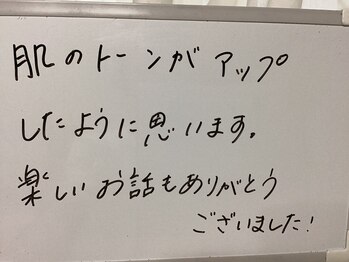 肌のトーンがアップ
したように思います。
楽しいお話もありがとう
ございました!